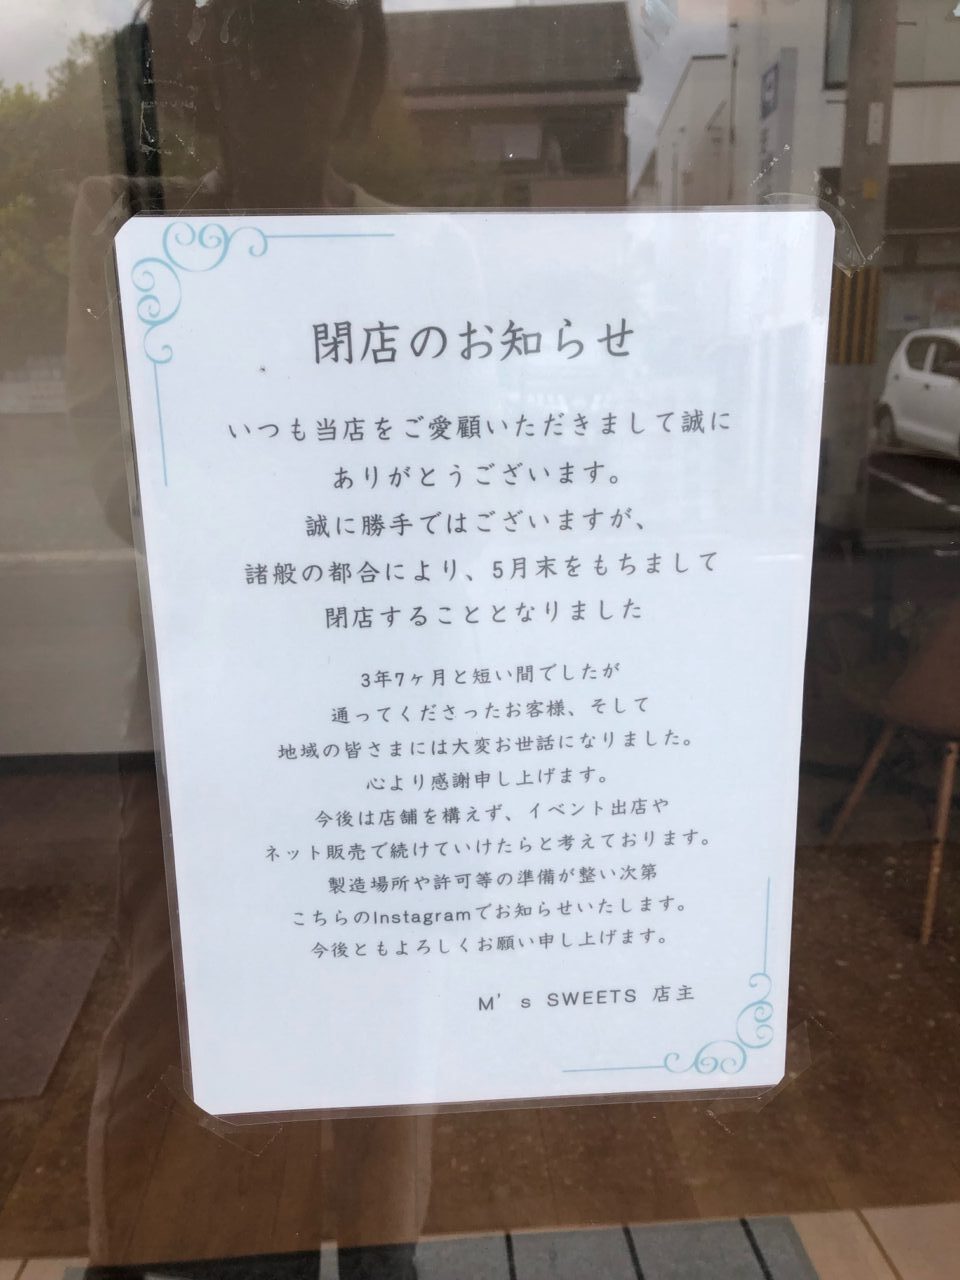 閉店のお知らせ
いつも当店をご愛顧いただきまして誠に
ありがとうございます。
誠に勝手ではございますが、
諸般の都合により、5月末をもちまして
閉店することとなりました
3年7ヶ月と短い間でしたが
通ってくださったお客様、そして
地域の皆さまには大変お世話になりました。
心より感謝申し上げます。
今後は店舗を構えず、イベント出店や
ネット販売で続けていけたらと考えております。
製造場所や許可等の準備が整い次第
こちらのInstagramでお知らせいたします。
今後ともよろしくお願い申し上げます。
M's SWEETS 店主